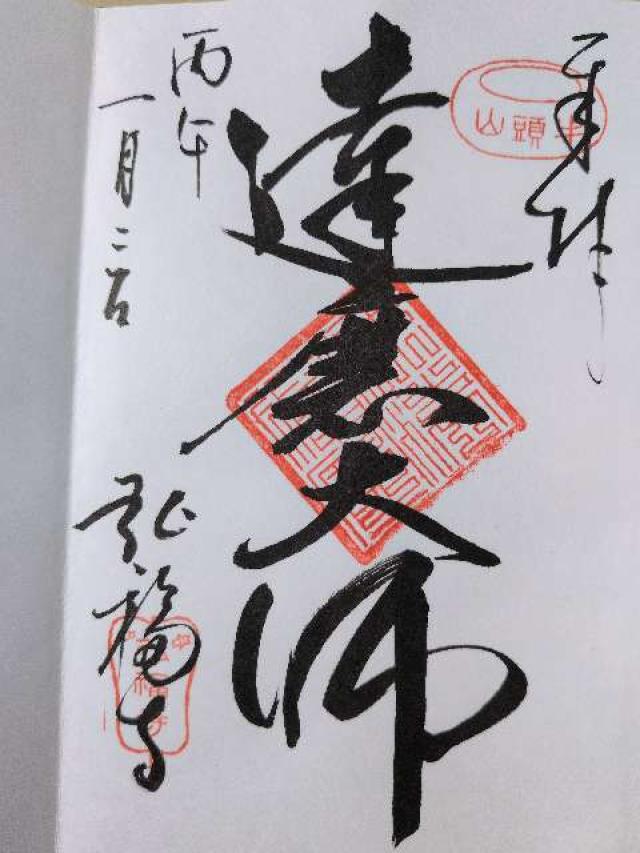 奉拝
山頭牛
達磨大師
丙午
一月二日
弘福寺
弘福寺